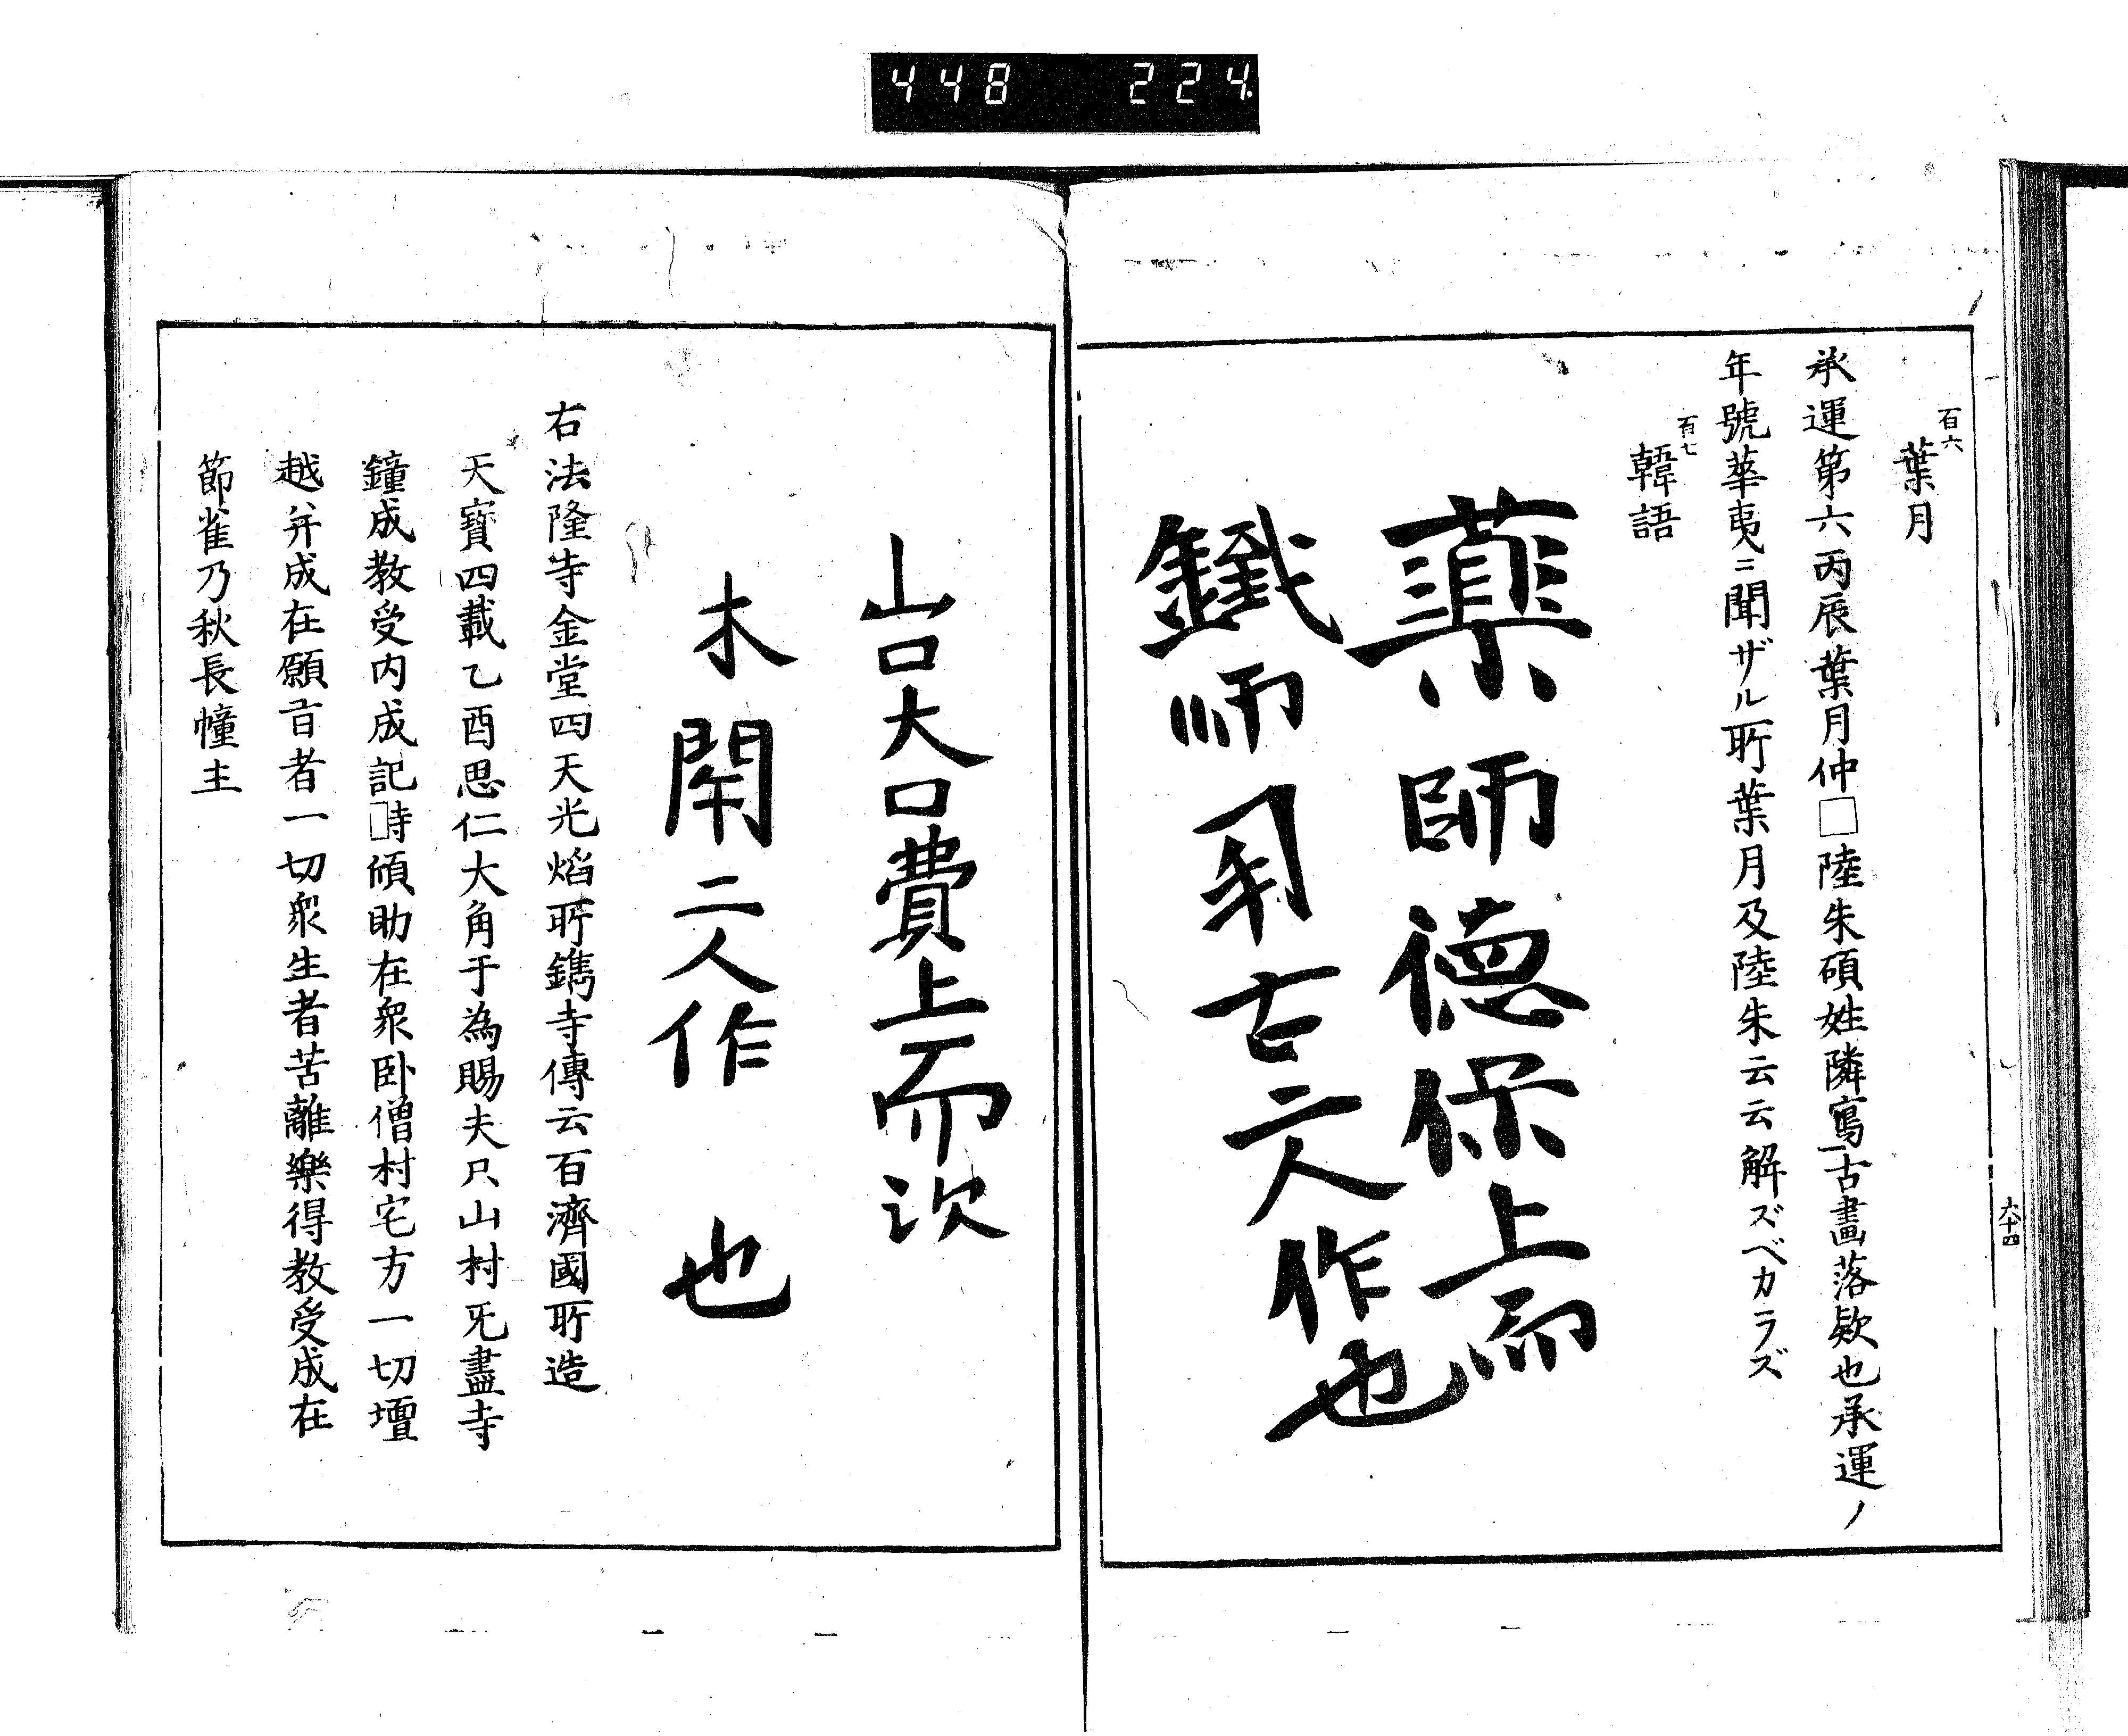 448 224
百六
葉月
承運第六丙辰葉月仲□陸朱碩姓隣寫古畫落欵也承運ノ
年號華夷ニ聞ザル所葉月及陸朱云云解ズベカラズ
百七
韓語
薬師德保上而
鐵師𠂤古二人作也
六十四
山口大口費上而次
木閇二人作也
右法隆寺金堂四天光焰所鐫寺傳云百濟國所造
天寶四載乙酉思仁大角于為賜夫只山村旡盡寺
鐘成教受内成記□時願助在衆卧僧村宅方一切壇
越并成在願旨者一切衆生者苦離樂得教受成在
節雀乃秋長幢主